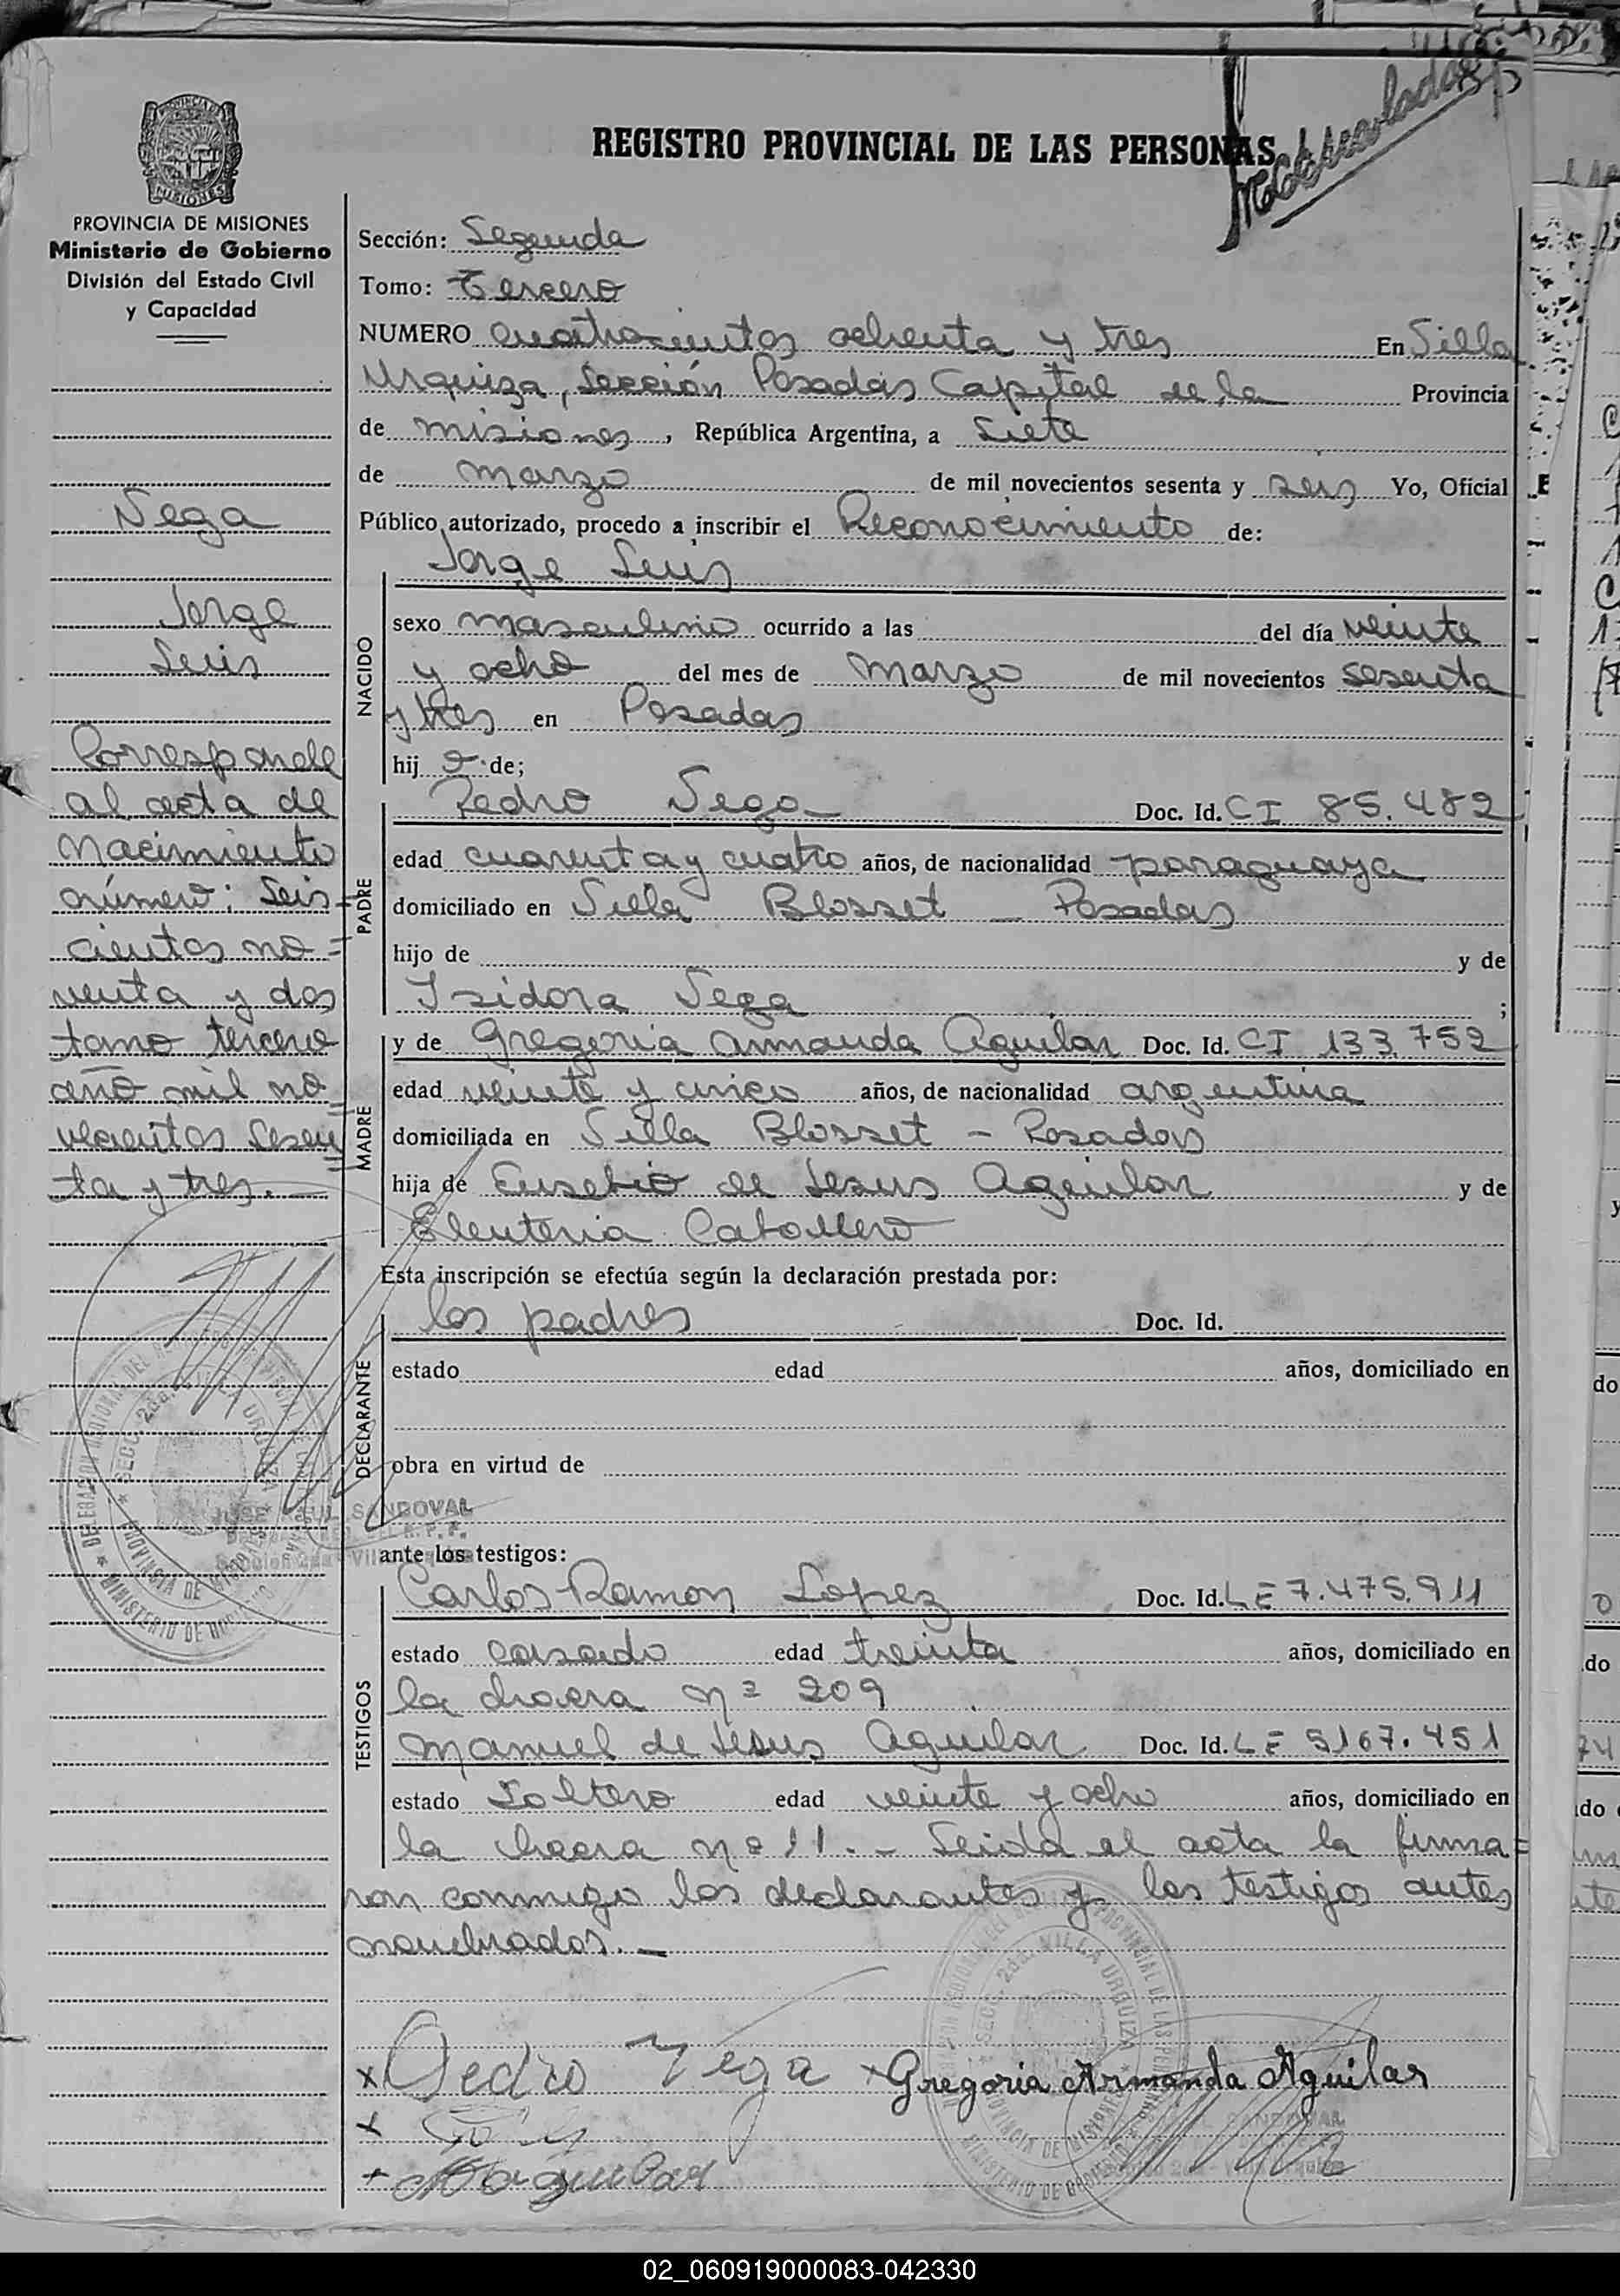 REGISTRO PROVINCIAL DE LAS PERSONAS
PROVINCIA DE MISIONES
Ministerio de Gobierno
División del Estado Civil
y Capacidad
Vega
Jorge
Luis
Corresponde
al acta de
Nacimiento
número: Seis=
cientos no=
venta y dos
tomo tercero
año mil no=
vecientos sesen=
ta y tres.
Sección: Segunda
Tomo: Tercero
NUMERO cuatrocientos ochenta y tres En Villa
Urquiza, Sección Posadas Capital de la Provincia
de misiones, República Argentina, a siete
de marzo de mil novecientos sesenta y seis Yo, Oficial
Público autorizado, procedo a inscribir el Reconocimiento de:
Jorge Luis
NACIDO
sexo masculino ocurrido a las del día veinte
y ocho del mes de marzo de mil novecientos sesenta
y tres en Posadas
hij o de;
PADRE
Pedro Vega Doc. Id. CI 85.482
edad cuarenta y cuatro años, de nacionalidad paraguaya
domiciliado en Villa Blosset - Posadas
hijo de y de
Isidora Vega ;
MADRE
y de Gregoria Armanda Aguilar Doc. Id. CI 133.752
edad veinte y cinco años, de nacionalidad argentina
domiciliada en Villa Blosset - Posadas
hija de Eusebio de Jesus Aguilar y de
Eleuteria Caballero
Esta inscripción se efectúa según la declaración prestada por:
DECLARANTE
los padres Doc. Id.
estado edad años, domiciliado en
obra en virtud de
SANDOVAL
ante los testigos:
TESTIGOS
Carlos Ramon Lopez Doc. Id. LE 7.475.911
estado casado edad treinta años, domiciliado en
la chacra nº 209
Manuel de Jesus Aguilar Doc. Id. LE 5167.451
estado Soltero edad veinte y ocho años, domiciliado en
la chacra nº 11. - Leida el acta la firma=
ron conmigo los declarantes y los testigos antes
nombrados. -
x Pedro Vega x Gregoria Armanda Aguilar
x
+ Aguilar
SANDOVAL
02_060919000083-042330